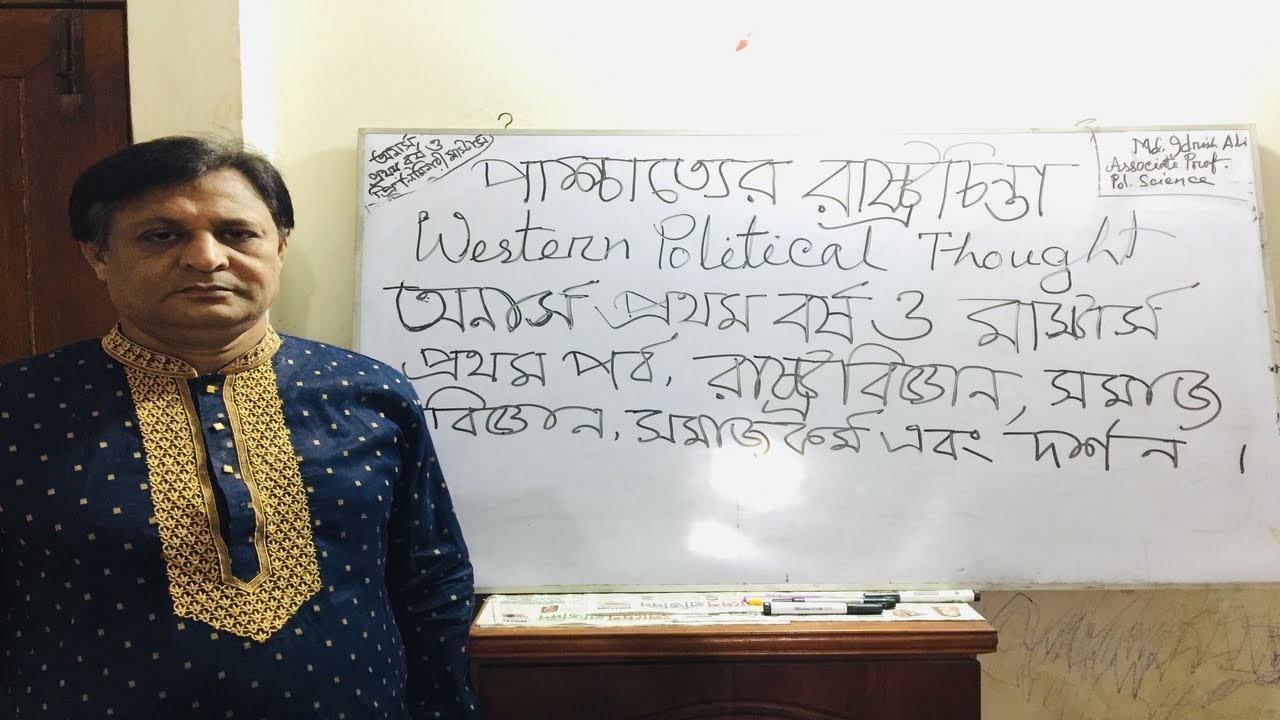 অনার্স
প্রথম বর্ষ ও
পাশ্চাত্যের রাষ্ট্রচিন্তা
Md. Idrish Ali
Associate Prof.
Pol. Science
Western Political Thought
অনার্স প্রথম বর্ষ ও মাস্টার্স
প্রথম পর্ব, রাষ্ট্রবিজ্ঞান, সমাজ
বিজ্ঞান, সমাজকর্ম এবং দর্শন ।